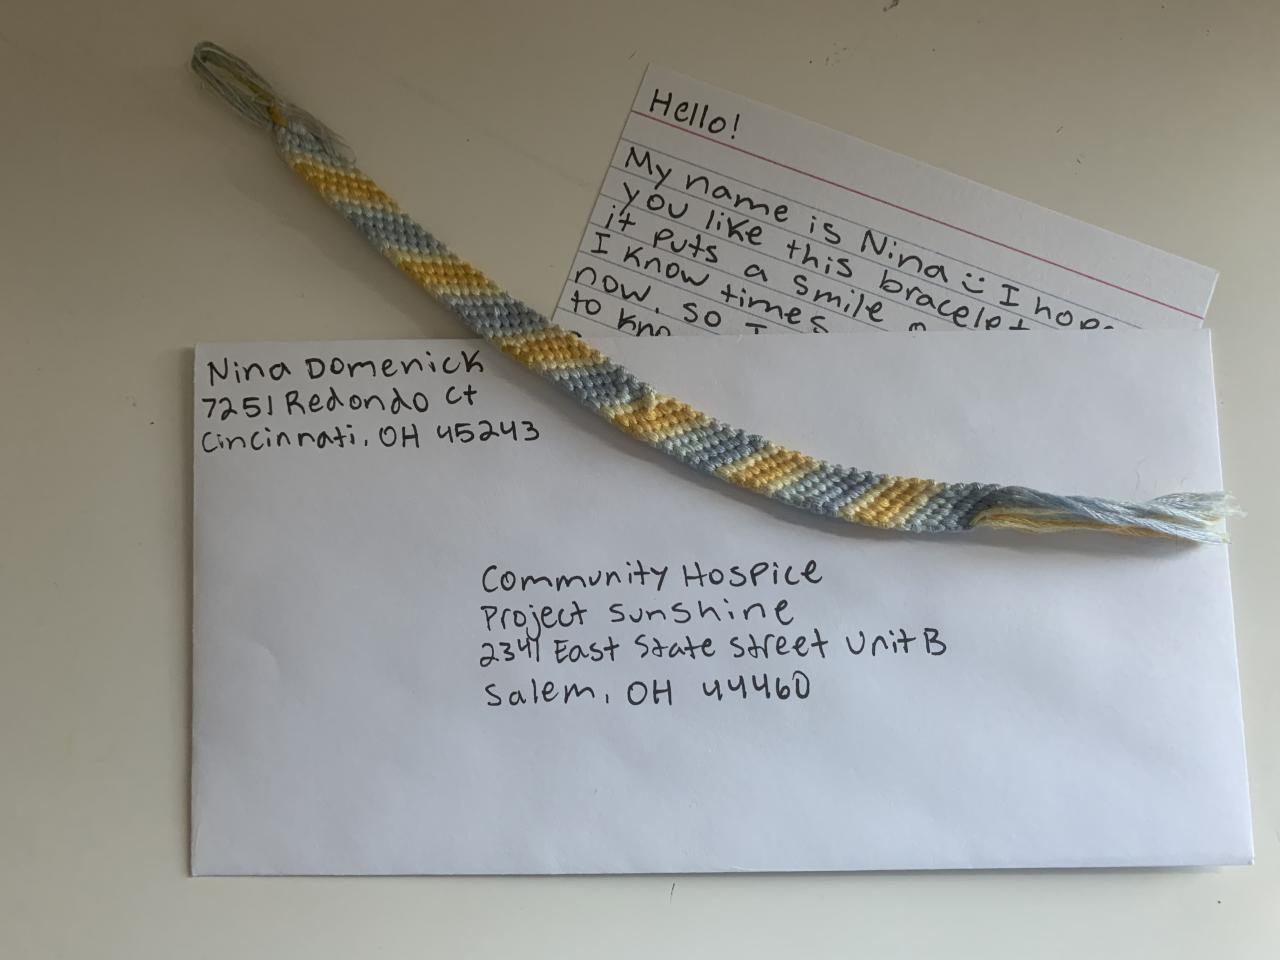 Hello!
My name is Nina I hope
you like this bracelet
it puts a smile
I know times
now. so I
to kno
Nina Domenick
7251 Redondo Ct
Cincinnati, OH 45243
Community Hospice
Project Sunshine
2341 East State Street Unit B
Salem, OH 44460